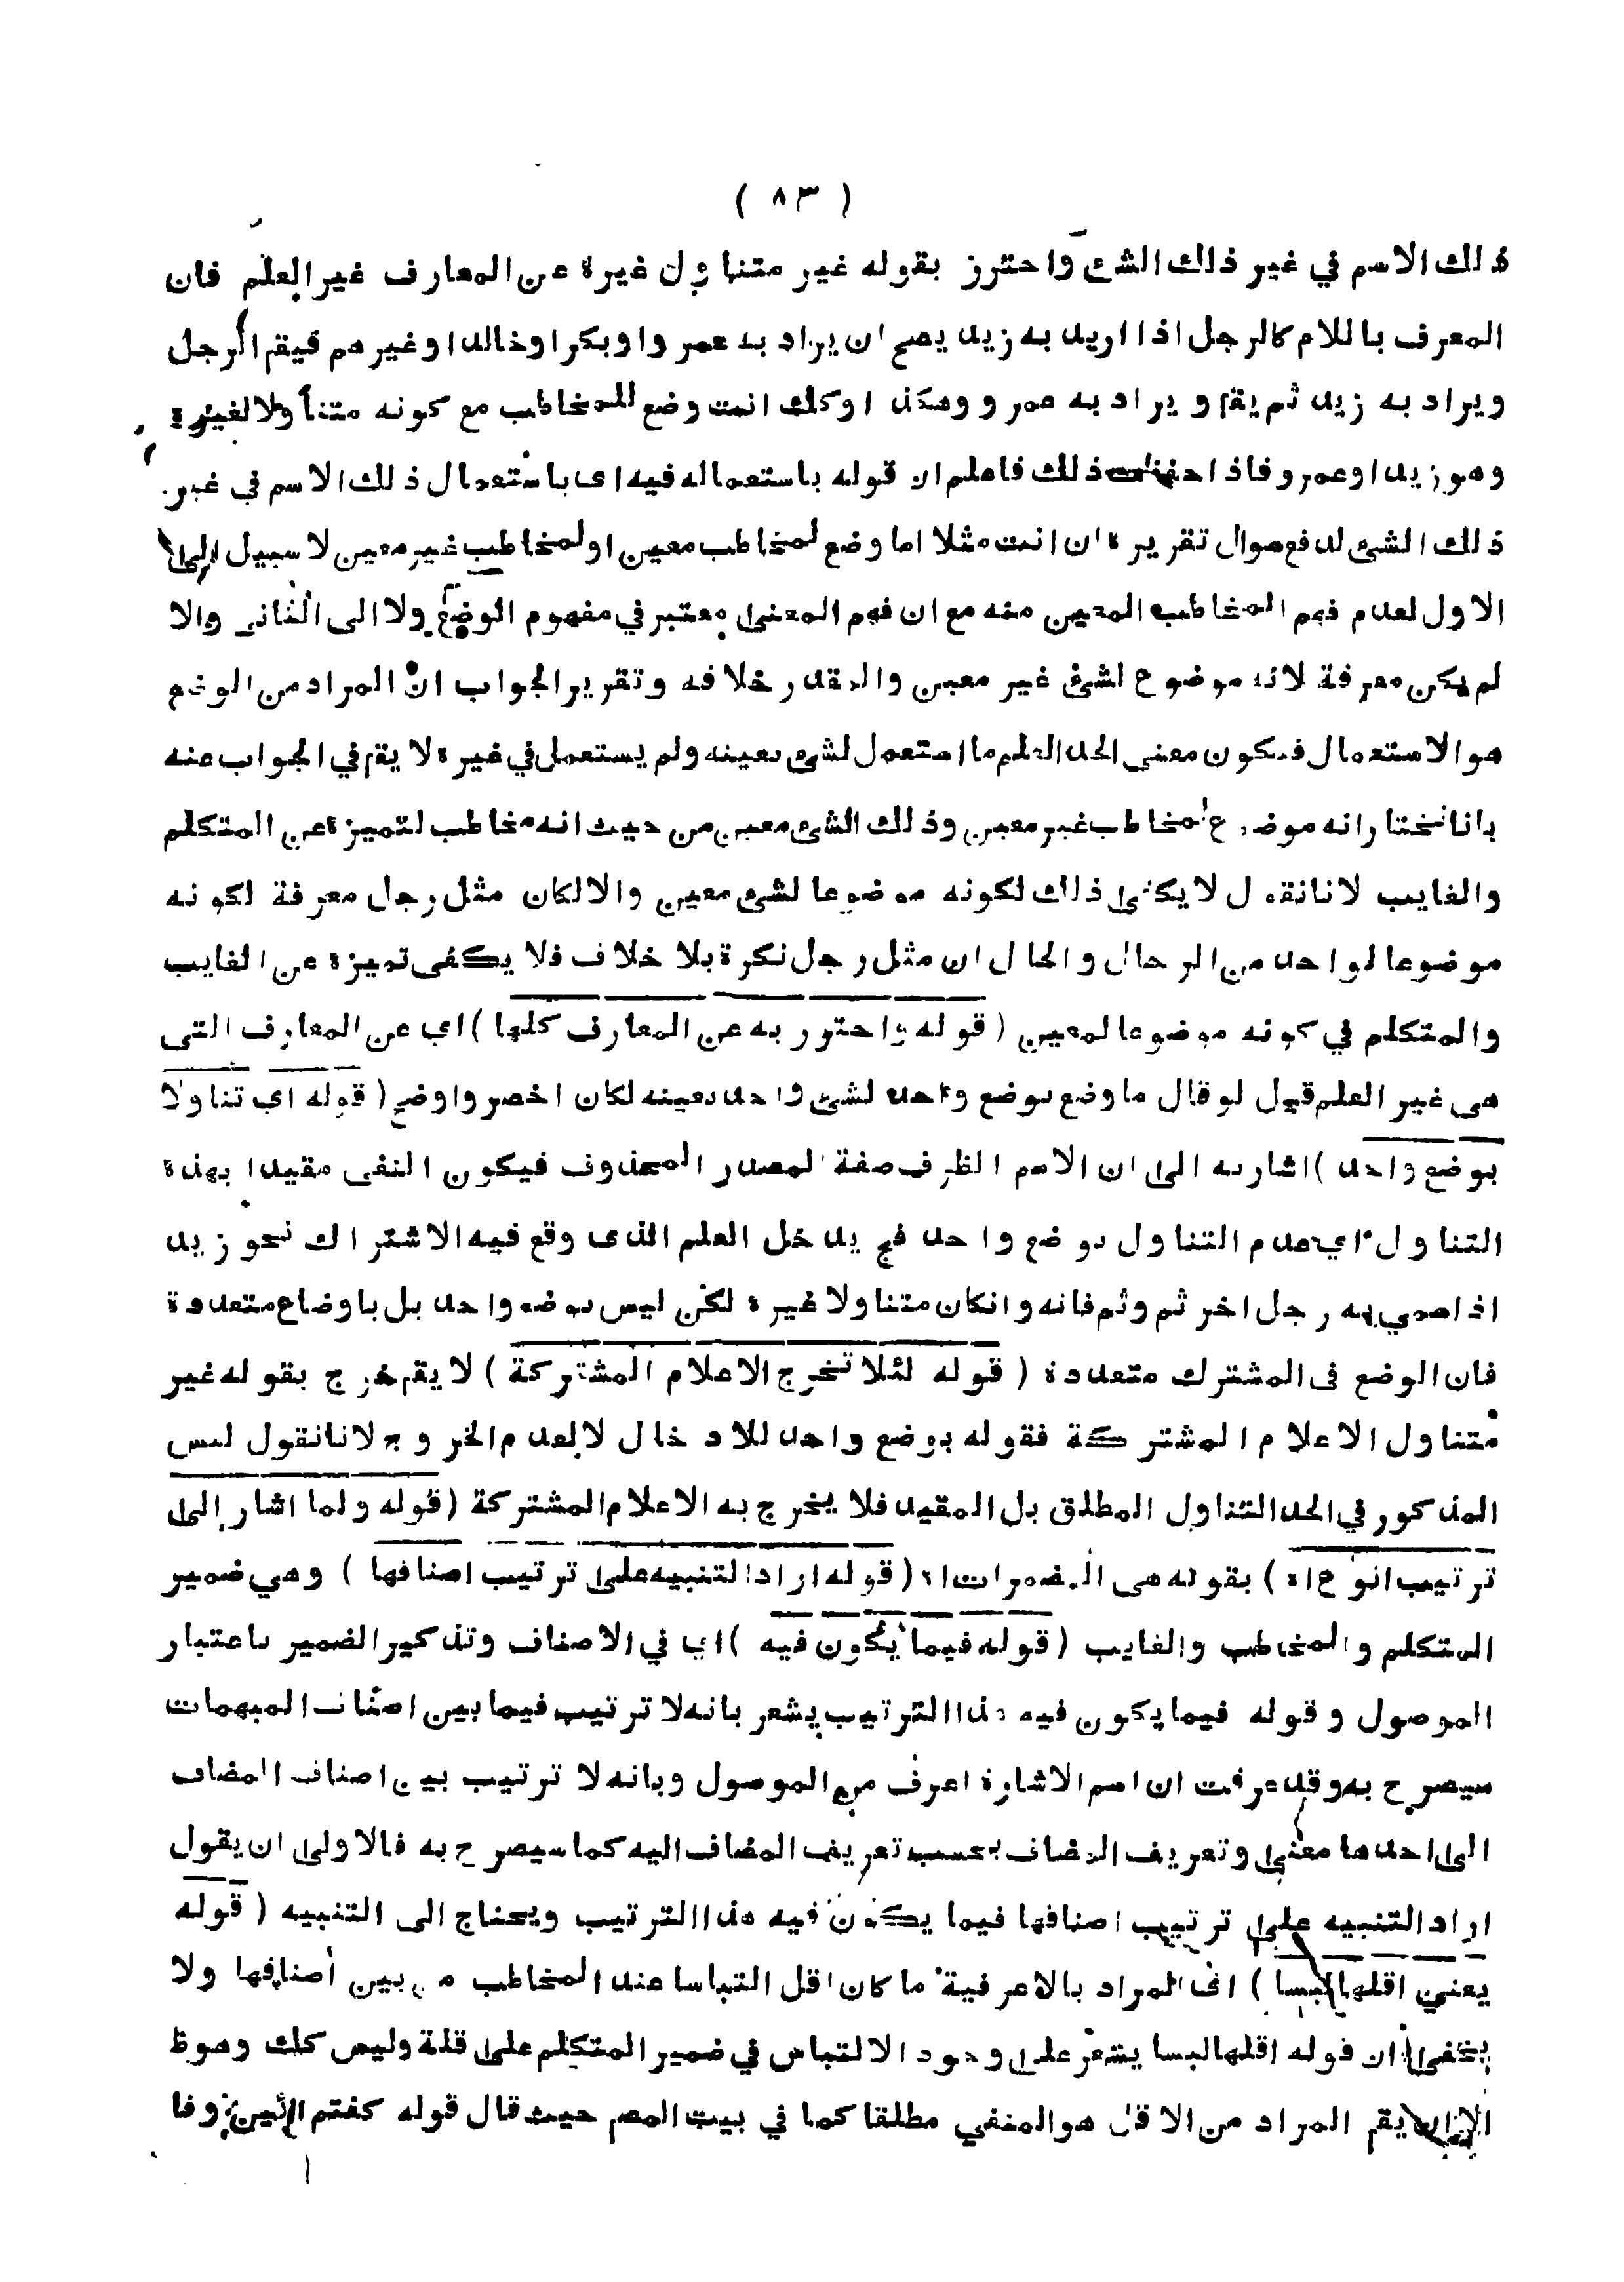 ( ٨٣ )
ذلك الاسم في غير ذلك الشئ واحترز بقوله غير متناول غيرة عن المعارف غير العلم فان
المعرف باللام كالرجل اذا اريد به زيد يصح ان يراد به عمروا وبكرا وخالدا وغيرهم فيقم الرجل
ويراد به زيد ثم يقم ويراد به عمرو وهكذا وكذلك انت وضع للمخاطب مع كونه متناولا لغيرة
وهو زيد او عمرو فاذا ذلك فاعلم ان قوله باستعماله فيه اى باستعمال ذلك الاسم في غير
ذلك الشئ لدفع سوال تقريرة ان انت مثلا اما وضع لمخاطب معين او لمخاطب غير معين لا سبيل الى
الاول لعدم فهم المخاطب المعين منه مع ان فهم المعنى معتبر في مفهوم الوضع ولا الى الثانى والا
لم يكن معرفة لانه موضوع لشئ غير معين والمقدر خلافه وتقرير الجواب ان المراد من الوضع
هو الاستعمال فيكون معنى الحد العلم ما استعمل لشئ بعينه ولم يستعمل في غيرة لا يقم في الجواب عنه
بانا نختار انه موضوع لمخاطب غير معين وذلك الشئ معين من حيث انه مخاطب لتميزة عن المتكلم
والغايب لانا نقول لا يكفى ذلك لكونه موضوعا لشئ معين والا لكان مثل رجل معرفة لكونه
موضوعا لواحد من الرجال والحال ان مثل رجل نكرة بلا خلاف فلا يكفى تميزة عن الغايب
والمتكلم في كونه موضوعا لمعين ( قوله واحترز به عن المعارف كلها ) اي عن المعارف التى
هى غير العلم قيل لو قال ما وضع بوضع واحد لشئ واحد بعينه لكان اخصر واوضح ( قوله اى تناولا
بوضع واحد ) اشار به الى ان الاسم الظرف صفة لمصدر المحذوف فيكون النفى مقيدا بهذة
التناول اي عدم التناول بوضع واحد فح يدخل العلم الذى وقع فيه الاشتراك نحو زيد
اذا سمي به رجل اخر ثم وثم فانه وانكان متناولا غيرة لكن ليس بوضع واحد بل باوضاع متعددة
فان الوضع فى المشترك متعددة ( قوله لئلا تخرج الاعلام المشتركة ) لا يقم خرج بقوله غير
متناول الاعلام المشتركة فقوله بوضع واحد للادخال لا لعدم الخروج لانا نقول ليس
المذكور في الحد التناول المطلق بل المقيد فلا يخرج به الاعلام المشتركة ( قوله ولما اشار الى
ترتيب انواع اه ) بقوله هى المضمرات اه ( قوله اراد التنبيه على ترتيب اصنافها ) وهي ضمير
المتكلم والمخاطب والغايب ( قوله فيما يكون فيه ) اي في الاصناف وتذكير الضمير باعتبار
الموصول وقوله فيما يكون فيه هذا الترتيب يشعر بانه لا ترتيب فيما بين اصناف المبهمات
سيصرح به وقد عرفت ان اسم الاشارة اعرف من الموصول وبانه لا ترتيب بين اصناف المضاف
الى احدها معنى وتعريف المضاف بحسب تعريف المضاف اليه كما سيصرح به فالاولى ان يقول
اراد التنبيه على ترتيب اصنافها فيما يكون فيه هذا الترتيب ويحتاج الى التنبيه ( قوله
يعني اقلها لبسا ) اى المراد بالاعرفية ما كان اقل التباسا عند المخاطب من بين أصنافها ولا
يخفى ان قوله اقلها لبسا يشعر على وجود الالتباس في ضمير المتكلم على قلة وليس كذلك وهو ظ
يقم المراد من الاقل هو المنفي مطلقا كما في بيت المص حيث قال قوله كفتم وفا